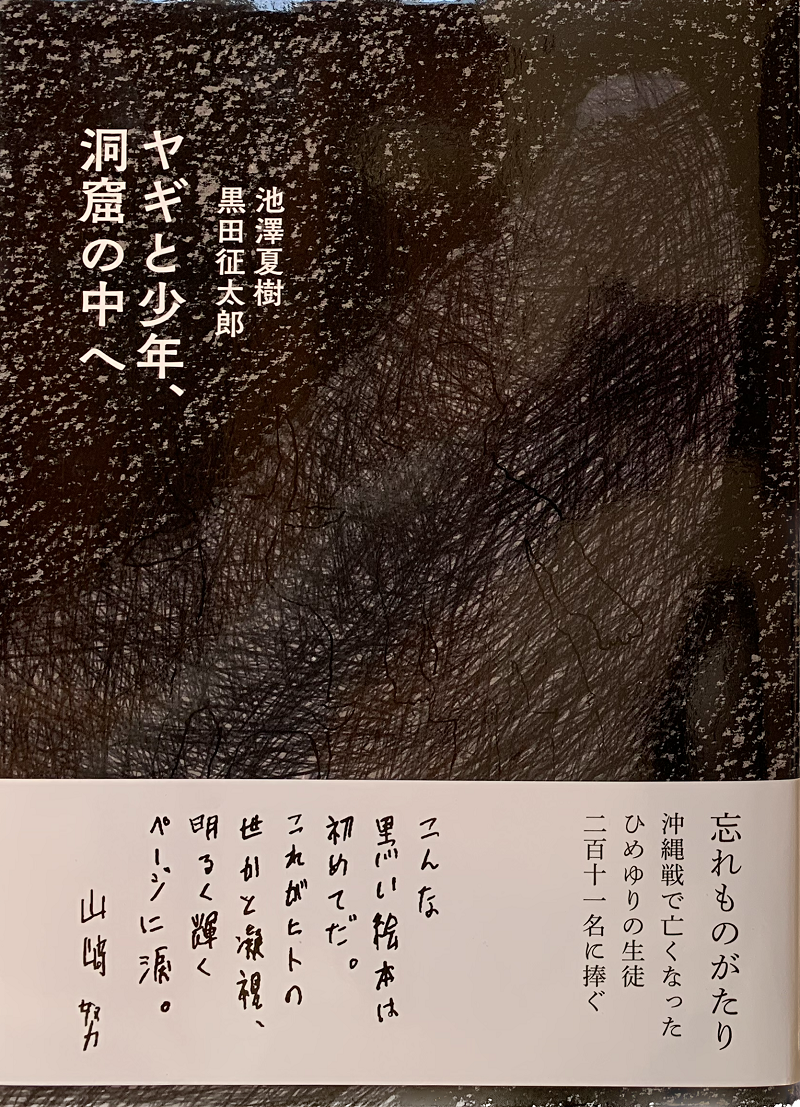 池澤夏樹
黒田征太郎
ヤギと少年、
洞窟の中へ
忘れものがたり
沖縄戦で亡くなった
ひめゆりの生徒
二百十一名に捧ぐ
こんな
黒い絵本は
初めてだ。
これがヒトの
世かと凝視、
明るく輝く
ページに涙。
山﨑 努